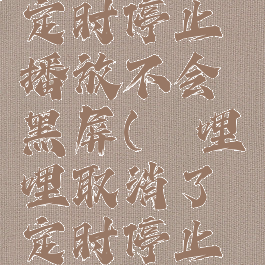 定时停止
播放不会
黑屏( 嘿
嘿取消了
定时停止